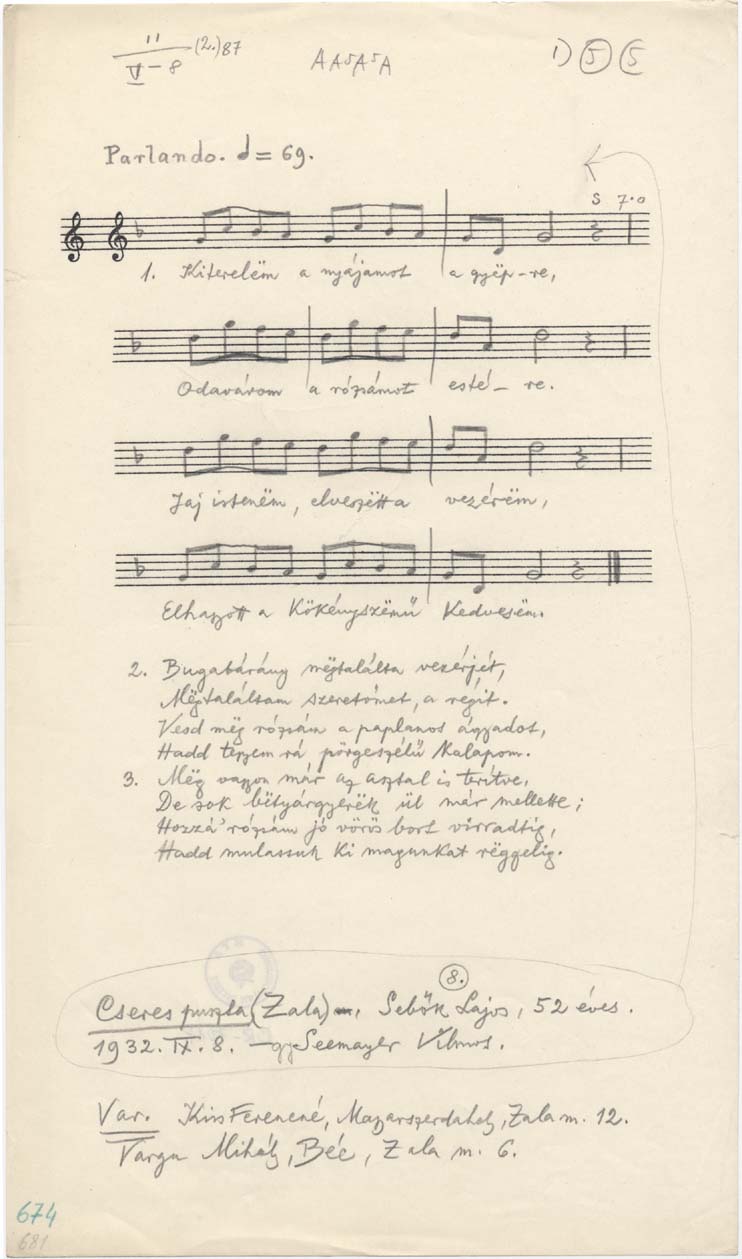 11 (2.) 87
V - 8
A A⁵ A⁵ A
1) 5 5
Parlando. = 69.
S 7.0
1. Kiterelëm a nyájamot a gyëp-re,
Odavárom a rózsámot esté- re.
Jaj istenëm, elveszëtt a vezérëm,
Elhagyott a Kökényszëmű kedvesëm.
2. Bugabárány mëgtalálta vezérjét,
Mëgtaláltam szeretőmet, a régit.
Vesd mëg rózsám a paplanos ágyadot,
Hadd tëgyem rá pörgeszélű kalapom.
3. Mëg vagyon már az asztal is terítve,
De sok bëtyárgyerëk ül már mellette;
Hozzá' rózsám jó vörös bort virradtig,
Hadd mulassuk ki magunkat rëggelig.
8.
Cseres puszta (Zala), Sebők Lajos, 52 éves.
1932. IX. 8. - gy Seemayer Vilmos.
Var. Kiss Ferencné, Magyarszerdahely, Zala m. 12.
Varga Mihály, Béc, Zala m. 6.
674
681